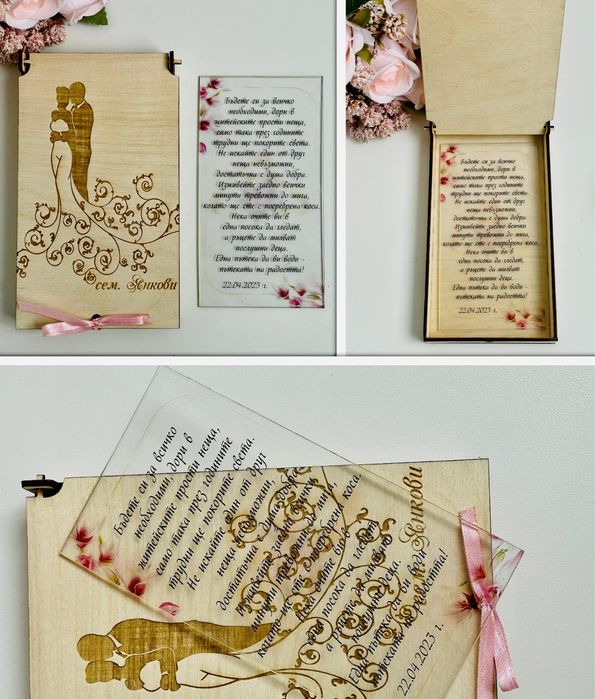 сем. Янкови
Бъдете си за всичко
необходими, дори в
житейските прости неща,
само така през годините
трудни ще покорите света.
Не искайте един от друг
неща невъзможни,
достатъчна е дума добра.
Изживейте заедно всички
минути тревожни до мига,
когато ще сте с посребрена коса.
Нека очите ви в
една посока да гледат,
а ръцете да милват
послушни деца.
Една пътека да ви води -
пътеката на радостта!
22.04.2023 г.
Бъдете си за всичко
необходими, дори в
житейските прости неща,
само така през годините
трудни ще покорите света.
Не искайте един от друг
неща невъзможни,
достатъчна е дума добра.
Изживейте заедно всички
минути тревожни до мига,
когато ще сте с посребрена коса.
Нека очите ви в
една посока да гледат,
а ръцете да милват
послушни деца.
Една пътека да ви води -
пътеката на радостта!
22.04.2023 г.
Бъдете си за всичко
необходими, дори в
житейските прости неща,
само така през годините
трудни ще покорите света.
Не искайте един от друг
неща невъзможни,
достатъчна е дума добра.
минути тревожни до мига,
когато ще сте с посребрена коса.
Нека очите ви в
една посока да гледат,
а ръцете да милват
Една пътека да ви води
пътеката на радостта!
22.04.2023 г.
сем. Янкови